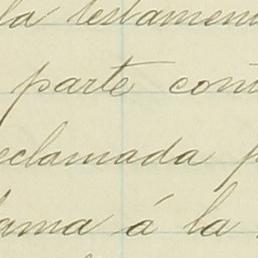 la testamen
parte con
eclamada p
ama á la